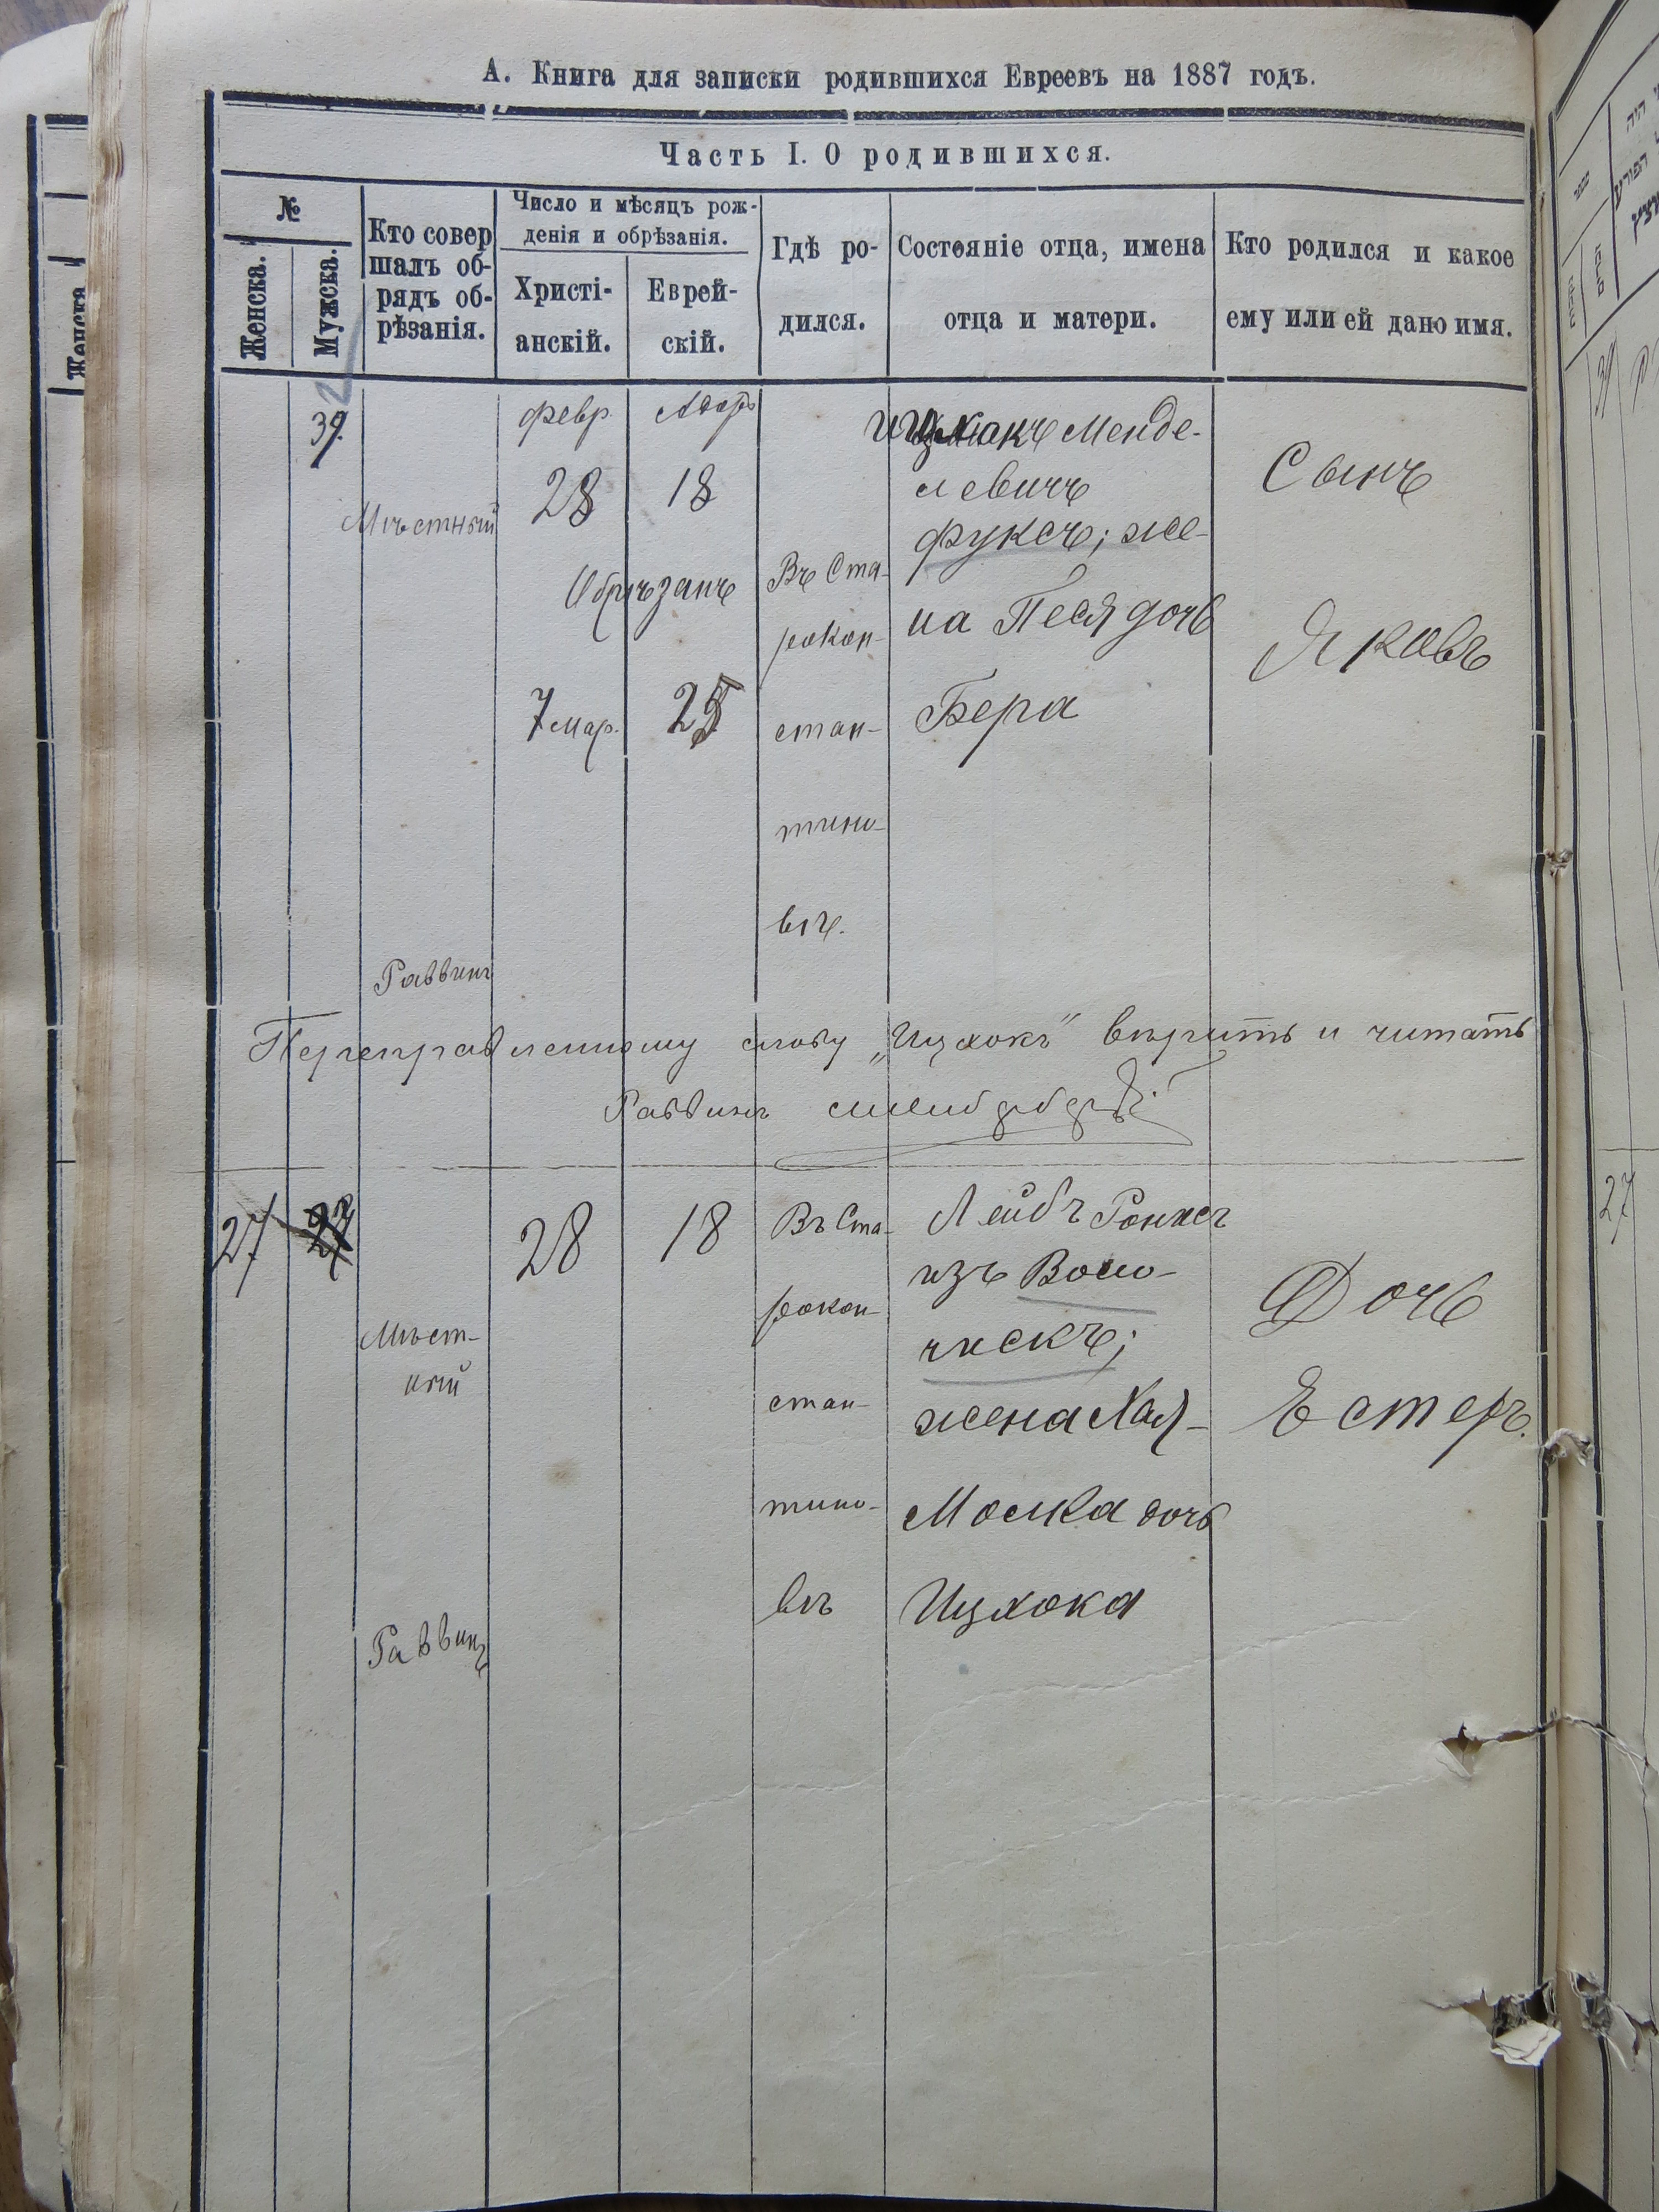 А. Книга для записки родившихся Евреевъ на 1887 годъ.
Часть I. О родившихся.
№
Женска.
Мужска.
Кто совер
шалъ об-
рядъ об-
рѣзанія.
Число и мѣсяцъ рож-
денія и обрѣзанія.
Христі-
анскій.
Еврей-
скій.
Гдѣ ро-
дился.
Состояніе отца, имена
отца и матери.
Кто родился и какое
ему или ей дано имя.
39.
Мѣстный
Раввинъ
февр.
28
Адаръ
18
Обрѣзанъ
7 мар.
25
Въ Ста-
рокон-
стан-
тино-
вѣ.
Ицхакъ Менде-
левичъ
Фуксъ; же-
на Песя дочь
Бера
Сынъ
Яковъ
Переправленному слову „Ицхокъ" вѣрить и читать
Раввинъ
27
27
Мѣст-
ный
Раввинъ
28
18
Въ Ста-
рокон-
стан-
тино-
вѣ
Лейбъ
изъ Воло-
чискъ;
жена Хая-
Малка дочь
Ицхока
Дочь
Естеръ.
Женска
39
27